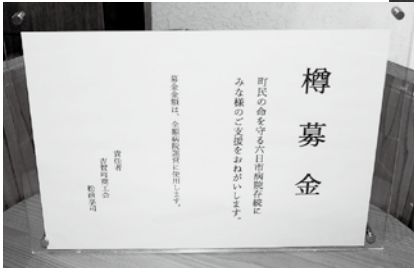 樽募金
町民の命を守る六日市病院存続に
みな様のご支援をおねがいします。
募金金額は、全額病院運営に使用します。
責任者
吉賀町商工会